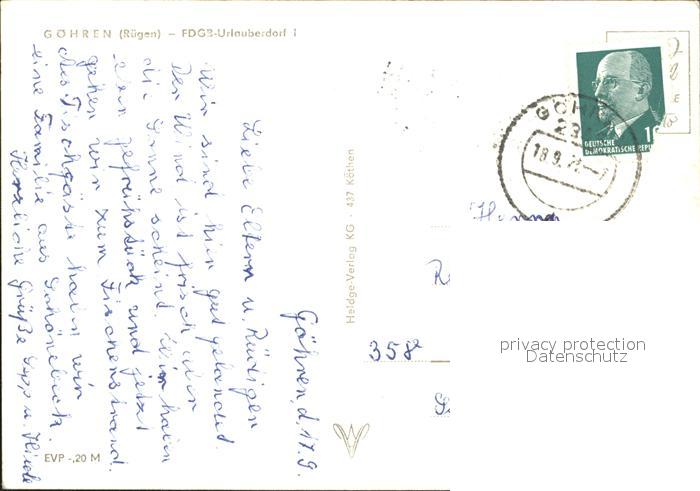 GÖHREN (Rügen) – FDGB-Urlauberdorf I
Göhren, d. 17.9.
Liebe Eltern u. Rüdiger
Wir sind hier gut gelandet.
Der Wind ist frisch aber
die Sonne scheint. Wir haben
gefrühstückt und jetzt
gehen wir zum Fischerstrand.
Als Tischgäste haben wir
eine Familie aus Schönebeck.
Herzliche Grüße u.
EVP -,20 M
Heldge-Verlag KG · 437 Köthen
DEUTSCHE
DEMOKRATISCHE REPU
GÖH
23
18.9.
358
privacy protection
Datenschutz